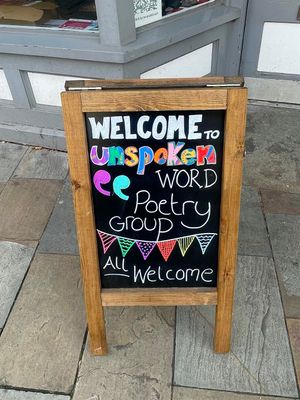 WELCOME TO
unspoken
WORD
Poetry
Group
All Welcome